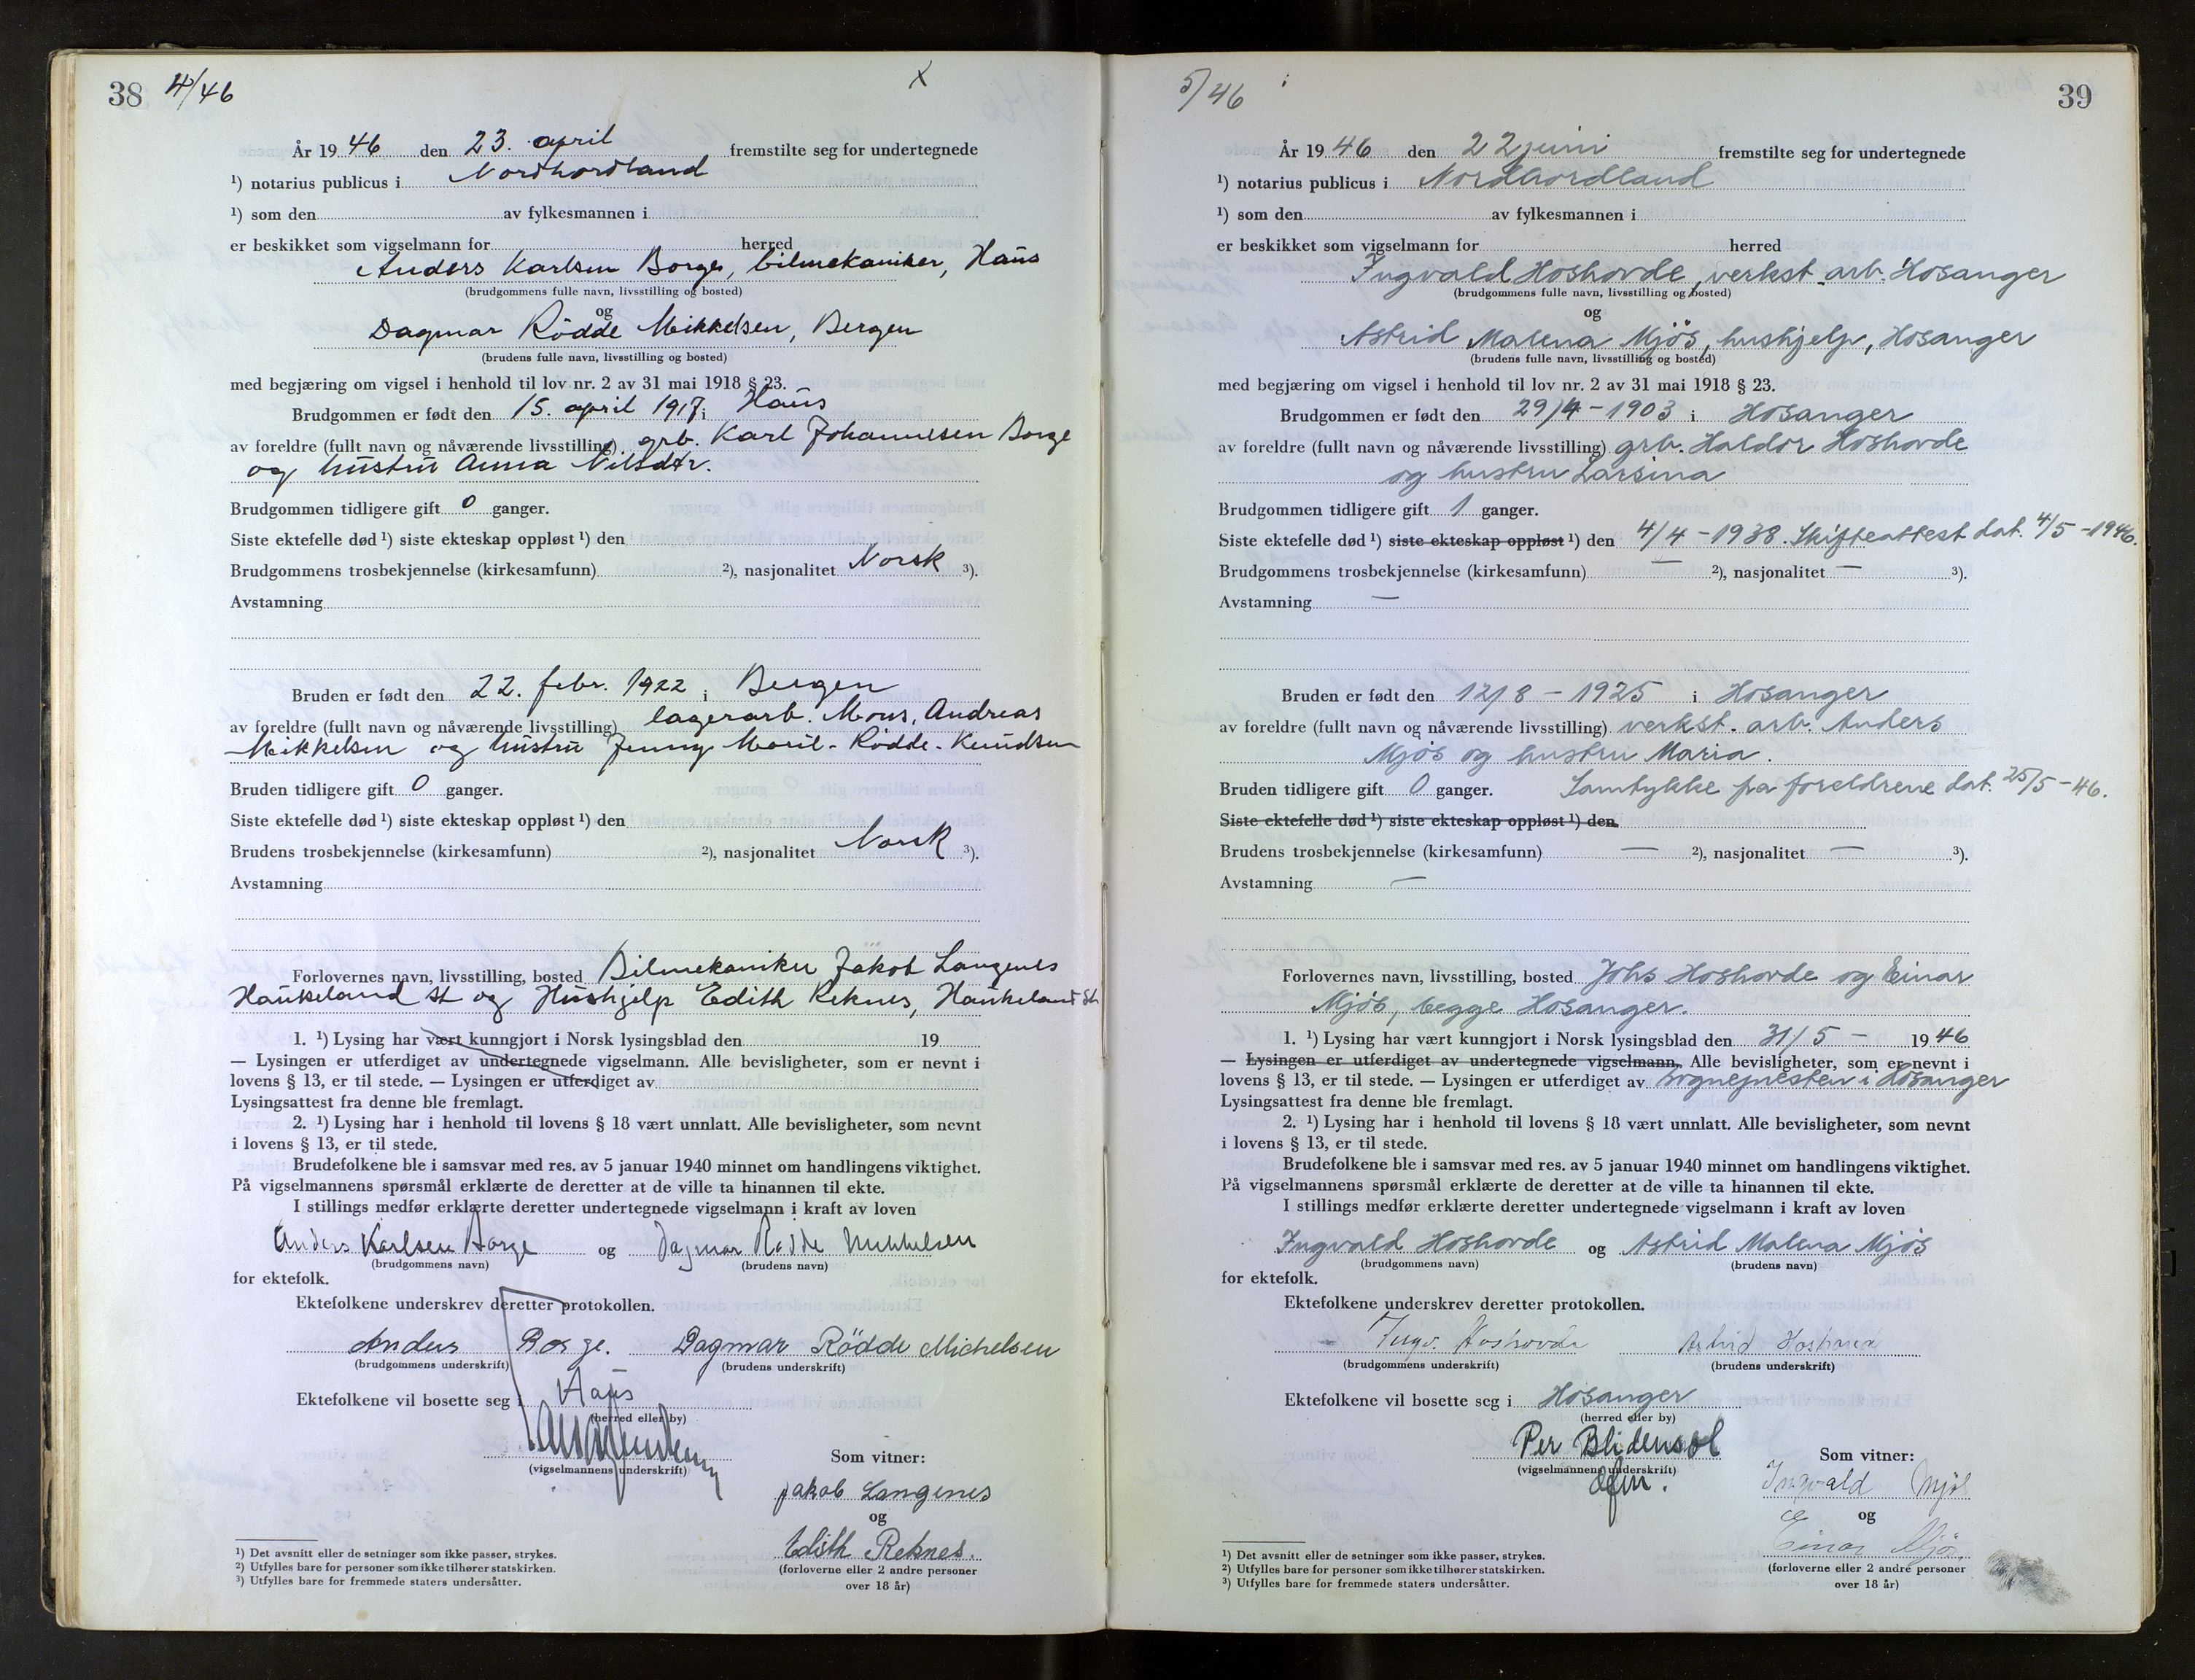 38 4/46 X
År 19 46 den 23. april fremstilte seg for undertegnede
¹) notarius publicus i Nordhordland
¹) som den av fylkesmannen i
er beskikket som vigselmann for herred
Anders Karlsen Borge, bilmekaniker, Haus
(brudgommens fulle navn, livsstilling og bosted)
og
Dagmar Rödde Mikkelsen, Bergen
(brudens fulle navn, livsstilling og bosted)
med begjæring om vigsel i henhold til lov nr. 2 av 31 mai 1918 § 23.
Brudgommen er født den 15. april 1917 i Haus
av foreldre (fullt navn og nåværende livsstilling) grb. Karl Johannesen Borge
og hustru Anna Nilsdtr.
Brudgommen tidligere gift 0 ganger.
Siste ektefelle død ¹) siste ekteskap oppløst ¹) den
Brudgommens trosbekjennelse (kirkesamfunn) ²), nasjonalitet Norsk ³).
Avstamning
Bruden er født den 22. febr. 1922 i Bergen
av foreldre (fullt navn og nåværende livsstilling) lagerarb. Mons, Andreas
Mikkelsen og hustru Jenny Maril - Rödde - Knudsen
Bruden tidligere gift 0 ganger.
Siste ektefelle død ¹) siste ekteskap oppløst ¹) den
Brudens trosbekjennelse (kirkesamfunn) ²), nasjonalitet Norsk ³).
Avstamning
Forlovernes navn, livsstilling, bosted Bilmekaniker Jakob Langenes
Haukeland st og Hushjelp Edith Reknes, Haukeland st
1. ¹) Lysing har vært kunngjort i Norsk lysingsblad den 19
— Lysingen er utferdiget av undertegnede vigselmann. Alle bevisligheter, som er nevnt i
lovens § 13, er til stede. — Lysingen er utferdiget av
Lysingsattest fra denne ble fremlagt.
2. ¹) Lysing har i henhold til lovens § 18 vært unnlatt. Alle bevisligheter, som nevnt
i lovens § 13, er til stede.
Brudefolkene ble i samsvar med res. av 5 januar 1940 minnet om handlingens viktighet.
På vigselmannens spørsmål erklærte de deretter at de ville ta hinannen til ekte.
I stillings medfør erklærte deretter undertegnede vigselmann i kraft av loven
Anders Karlsen Borge og Dagmar Rödde Mikkelsen
(brudgommens navn) (brudens navn)
for ektefolk.
Ektefolkene underskrev deretter protokollen.
Anders Borge. Dagmar Rödde Michelsen
(brudgommens underskrift) (brudens underskrift)
Ektefolkene vil bosette seg i Haus
(herred eller by)
(vigselmannens underskrift)
Som vitner:
Jakob Langenes
og
Edith Reknes.
(forloverne eller 2 andre personer
over 18 år)
¹) Det avsnitt eller de setninger som ikke passer, strykes.
²) Utfylles bare for personer som ikke tilhører statskirken.
³) Utfylles bare for fremmede staters undersåtter.
5/46 39
År 19 46 den 22 juni fremstilte seg for undertegnede
¹) notarius publicus i Nordhordland
¹) som den av fylkesmannen i
er beskikket som vigselmann for herred
Ingvald Hoshovde, verkst. arb. Hosanger
(brudgommens fulle navn, livsstilling og bosted)
og
Astrid Malena Mjös, hushjelp, Hosanger
(brudens fulle navn, livsstilling og bosted)
med begjæring om vigsel i henhold til lov nr. 2 av 31 mai 1918 § 23.
Brudgommen er født den 29/4 - 1903 i Hosanger
av foreldre (fullt navn og nåværende livsstilling) grb. Haldor Hoshovde
og hustru Larsina
Brudgommen tidligere gift 1 ganger.
Siste ektefelle død ¹) siste ekteskap oppløst ¹) den 4/4 - 1938. Skifteattest dat. 4/5 - 1946.
Brudgommens trosbekjennelse (kirkesamfunn) — ²), nasjonalitet — ³).
Avstamning —
Bruden er født den 12/8 - 1925 i Hosanger
av foreldre (fullt navn og nåværende livsstilling) verkst. arb. Anders
Mjös og hustru Maria.
Bruden tidligere gift 0 ganger. Samtykke fra foreldrene dat. 25/5 - 46.
Siste ektefelle død ¹) siste ekteskap oppløst ¹) den
Brudens trosbekjennelse (kirkesamfunn) — ²), nasjonalitet — ³).
Avstamning —
Forlovernes navn, livsstilling, bosted Johs Hoshovde og Einar
Mjös, begge Hosanger.
1. ¹) Lysing har vært kunngjort i Norsk lysingsblad den 31/5 - 1946
— Lysingen er utferdiget av undertegnede vigselmann. Alle bevisligheter, som er nevnt i
lovens § 13, er til stede. — Lysingen er utferdiget av sognepresten i Hosanger
Lysingsattest fra denne ble fremlagt.
2. ¹) Lysing har i henhold til lovens § 18 vært unnlatt. Alle bevisligheter, som nevnt
i lovens § 13, er til stede.
Brudefolkene ble i samsvar med res. av 5 januar 1940 minnet om handlingens viktighet.
På vigselmannens spørsmål erklærte de deretter at de ville ta hinannen til ekte.
I stillings medfør erklærte deretter undertegnede vigselmann i kraft av loven
Ingvald Hoshovde og Astrid Malena Mjös
(brudgommens navn) (brudens navn)
for ektefolk.
Ektefolkene underskrev deretter protokollen.
Ingv. Hoshovde Astrid Hoshovde
(brudgommens underskrift) (brudens underskrift)
Ektefolkene vil bosette seg i Hosanger
(herred eller by)
Per Blidensol
(vigselmannens underskrift)
Som vitner:
Ingvald Mjös
og
Einar Mjös
(forloverne eller 2 andre personer
over 18 år)
¹) Det avsnitt eller de setninger som ikke passer, strykes.
²) Utfylles bare for personer som ikke tilhører statskirken.
³) Utfylles bare for fremmede staters undersåtter.